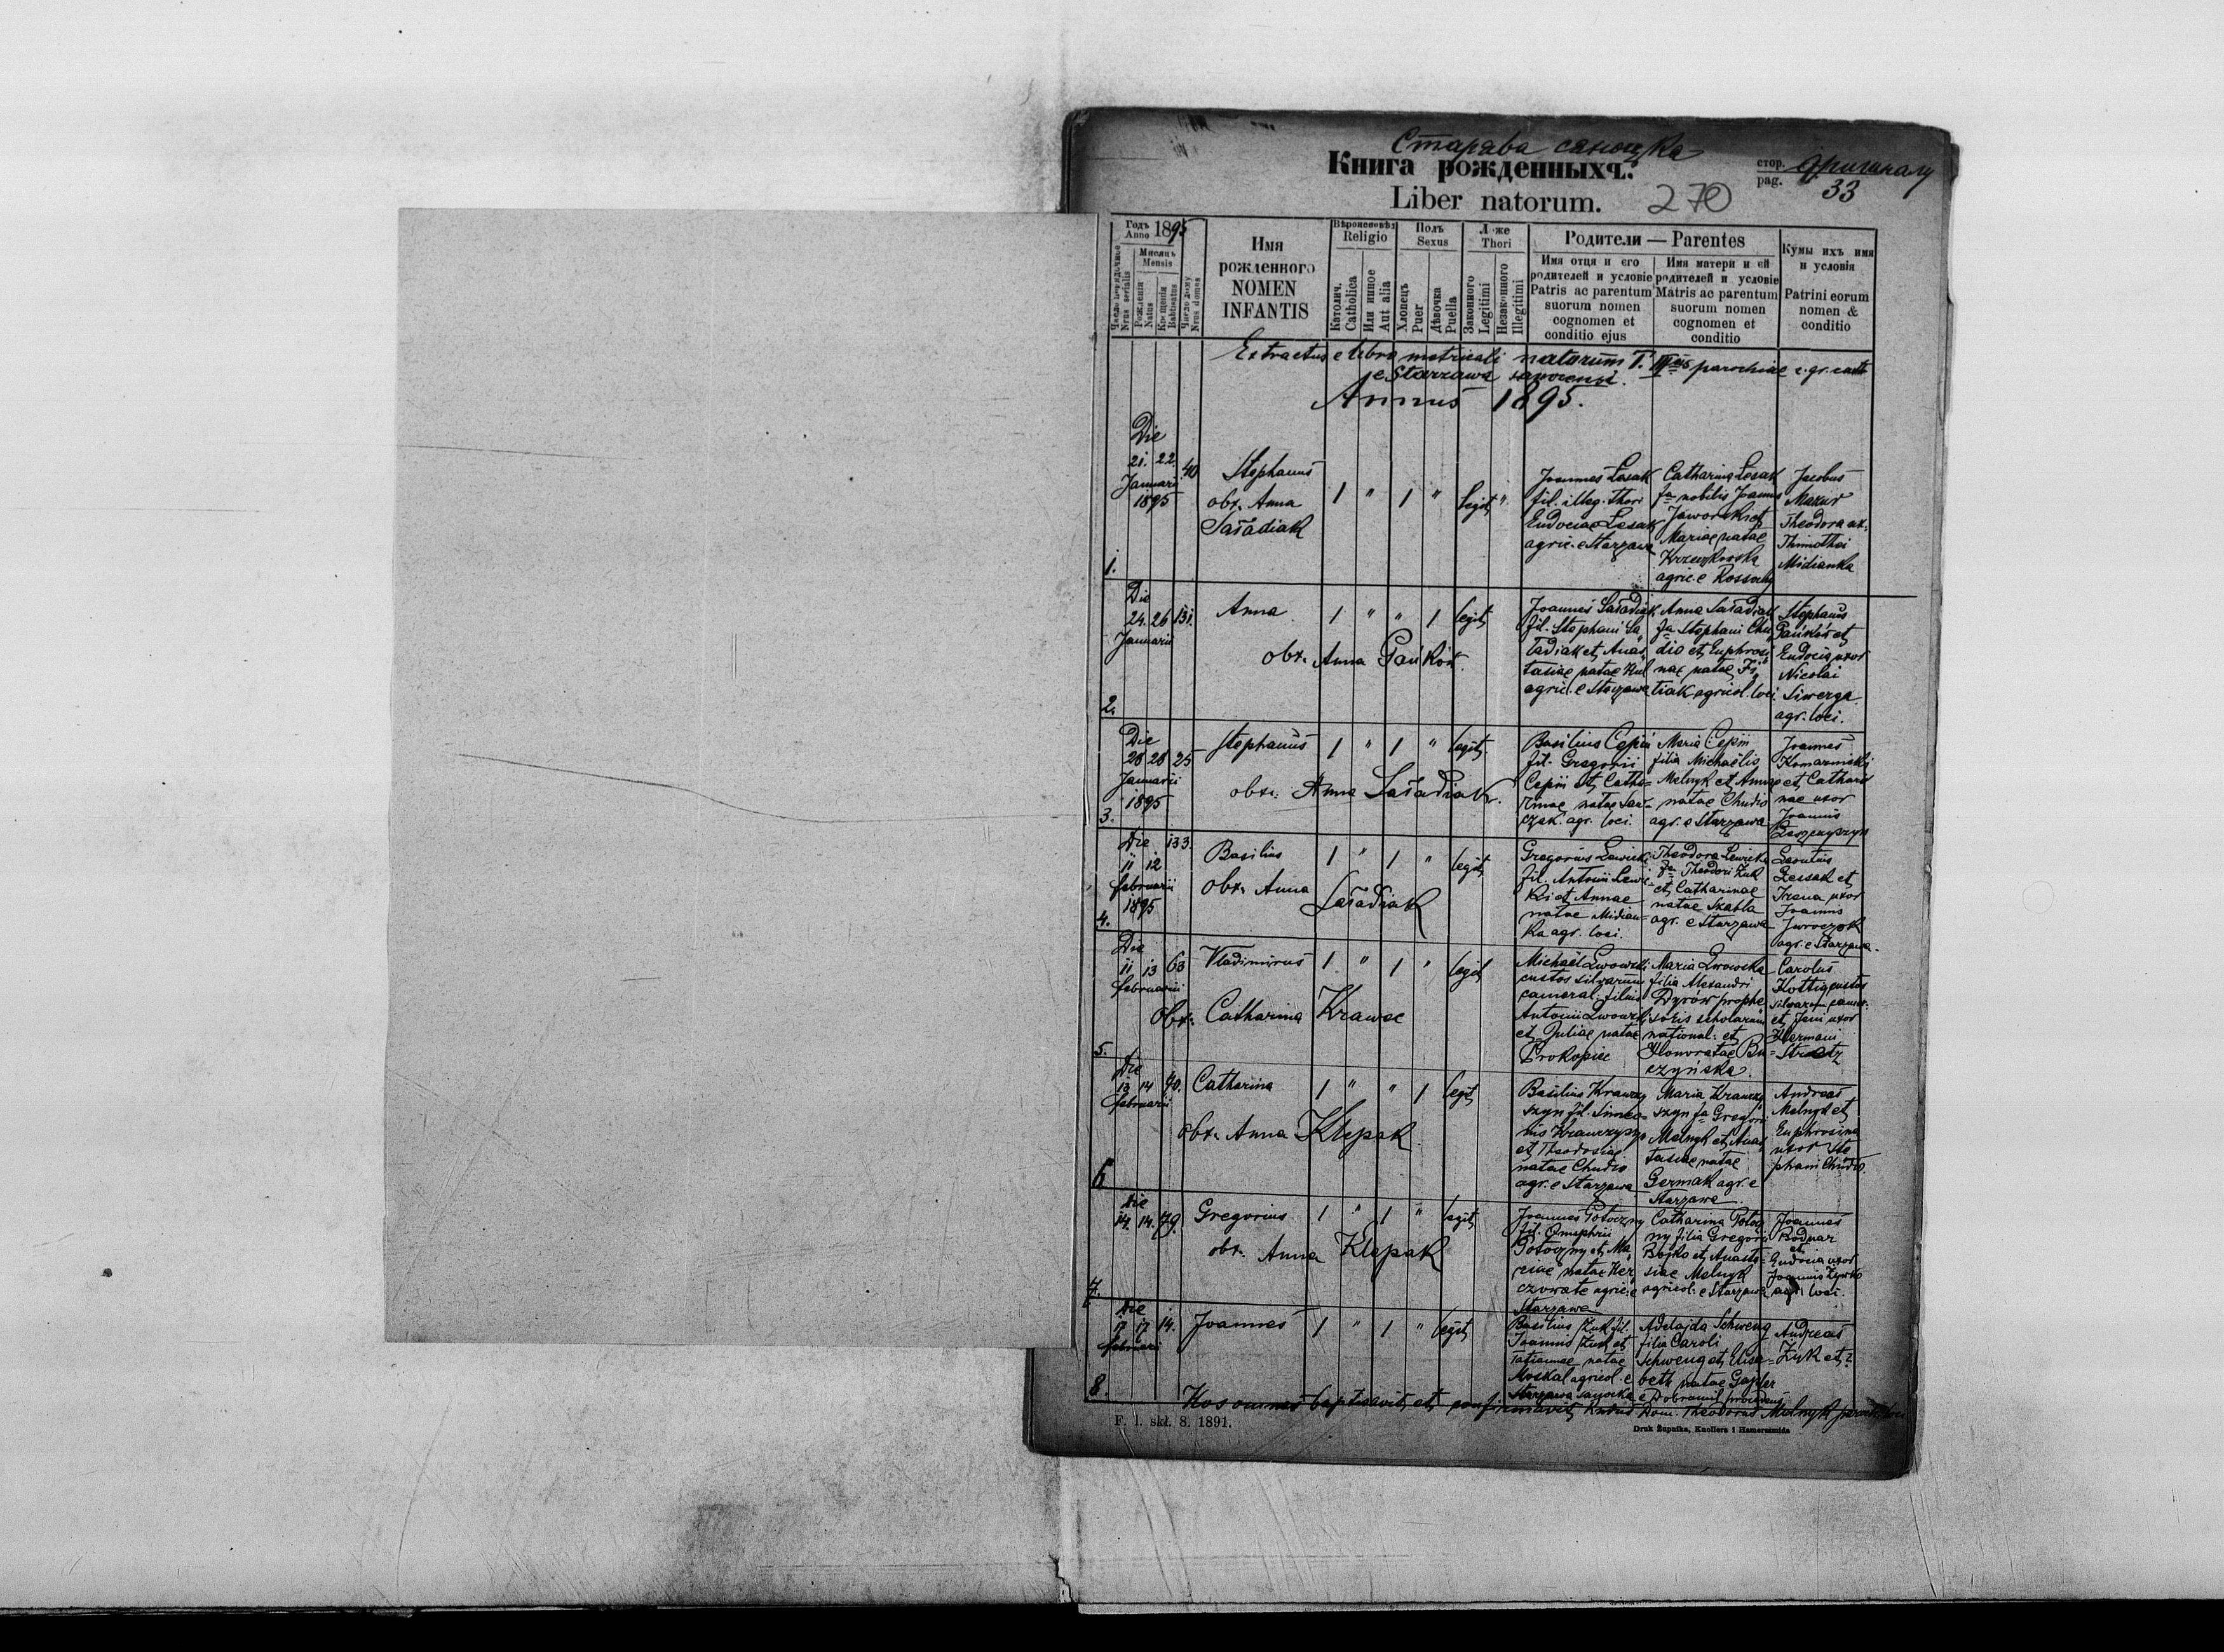 Старява сяноцка
Книга рожденныхъ.
Liber natorum.
270
стор. оригиналу
pag. 33
Годъ Anno 1895
Мѣсяць Mensis
Число порядочное Nrus serialis
Рожденія Natus
Крещенія Babtisatus
Число дому Nrus domus
Имя рожденного NOMEN INFANTIS
Вѣроисповѣд Religio
Католич. Catholica
Или иное Aut alia
Полъ Sexus
Хлопецъ Puer
Дѣвочка Puella
Ложе Thori
Законного Legitimi
Незаконного Illegitimi
Родители — Parentes
Имя отця и его родителей и условіе
Patris ac parentum suorum nomen cognomen et conditio ejus
Имя матери и ей родителей и условіе
Matris ac parentum suorum nomen cognomen et conditio
Кумы ихъ имя и условія
Patrini eorum nomen & conditio
Extractus e libro metricali natorum T. parochiae r. gr. cath
e Starzawa sanocensi.
Annus 1895.
1.
Die 21. 22. Januarii 1895
40
Stephanus
obx. Anna Saładiak
1 " 1 " legit "
Joannes Lesak
fil. illeg. thori
Eudociae Lesak
agric. e Starzawa
Catharina Lesak
fa nobilis Joannis
Jaworski et
Mariae natae
agric. e
Jacobus
Mazur
Theodora ux.
Thimothei
Midianka
2.
Die 24. 26 Januarii
131.
Anna
obx. Anna Pańków.
1 " " 1 legit
Joannes Saładiak
fil. Stephani Sa
ładiak et Anas
tasiae natae Kul
agric. e Starzawa
Anna Saładiak
fa Stephani Chu
dio et Euphrosi
nae natae Fi
tiak agricol. loci
Stephanus
Pańków et
Eudocia uxor
Nicolai
Siwerga
agr. loci.
3.
Die 28 28 Januarii 1895
25
Stephanus
obx. Anna Saładiak.
1 " 1 " legit.
Basilius Cepin
fil. Gregorii
Cepin et Catha-
rinae natae
czak. agr. loci.
Maria Cepin
filia Michaëlis
Melnyk et Annae
natae Chudio
agr. e Starzawa
Joannes
Komarnicki
et Cathari
nae uxor
Joannis
4.
Die 11 12 februarii 1895
133.
Basilius
obx. Anna Saładiak
1 " 1 " legit
Gregorius Lewicki
fil. Antonii Lewi-
cki et Annae
natae Midian-
ka agr. loci.
Theodora Lewicka
fa Theodori Żuk
et Catharinae
natae Skabla
agr. e Starzawa
Leontius
Lessak et
Irena uxor
Joannis
Jaroczok
agr. e Starzawa.
5.
Die 11 13 februarii
63
Vladimirus
obx. Catharina Krawec
1 " 1 " legit
Michaël Lwowski
custos silvarum
cameral. filius
Antonii Lwowski
et Juliae natae
Prokopiec
Maria Lwowska
filia Alexandri
Dyrów prophe
soris scholarum
national. et
Honoratae Bu-
czyńska.
Carolus
Kottig custos
silvarum camer.
et Jeni uxor
Hermani
6.
Die 13 14 februarii
40.
Catharina
obx. Anna Klepak
1 " " 1 legit
Basilius Krawczy
szyn fil. Simeo-
nis Krawczyszyn
et Theodosiae
natae Chudio
agr. e Starzawa
Maria Krawczy
szyn fa Gregorii
Melnyk et Anas
tasiae natae
Germak agr. e
Starzawa.
Andreas
Melnyk et
Euphrosina
uxor Ste
phani Chudio.
7.
Die 14. 14.
79.
Gregorius
obx. Anna Klepak
1 " 1 " legit
Joannes Potoczny
fil. Onuphrii
Potoczny et Ma
riae natae
agric. e
Starzawa
Catharina Potocz
ny filia Gregorii
Bojko et Anasta-
siae Melnyk
agricol. e Starzawa
Joannes
Bodnar
et
Eudocia uxor
Joannis
agr. loci.
8.
Die 17 17 februarii
14.
Joannes
1 " 1 " legit
Basilius Żuk fil.
Joannis Żuk et
Tatiannae natae
Moskal agricol. e
Starzawa sanocka
Adelajda Schweng
filia Caroli
Schweng et Elisa-
beth natae
e Dobromil
Andreas
Żyk et
Hos omnes baptisavit et confirmavit Dom. Theodorus Melnyk loci
F. l. skł. 8. 1891.
Druk Żupnika, Knollera i Hamerszmida